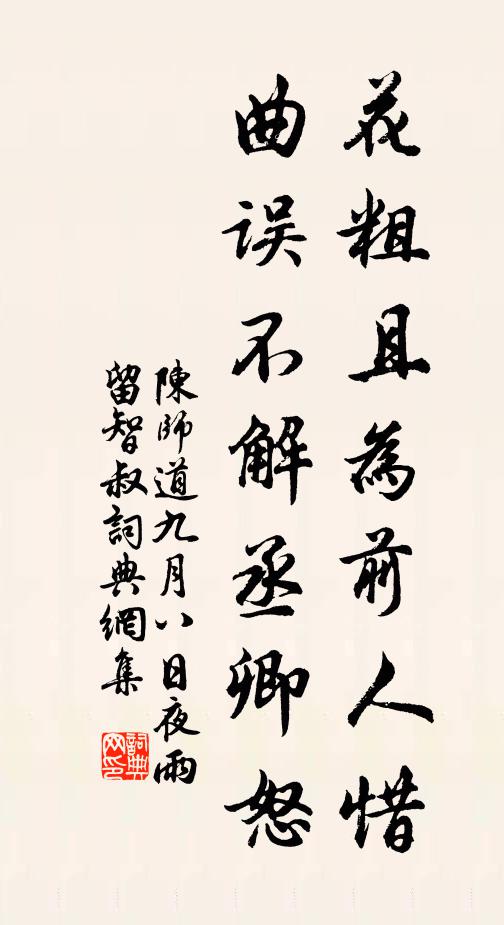 花粗且為前人惜
曲误不解丞卿怒
陳師道九月八日夜雨
留智叔詞典網集
詞典
网印